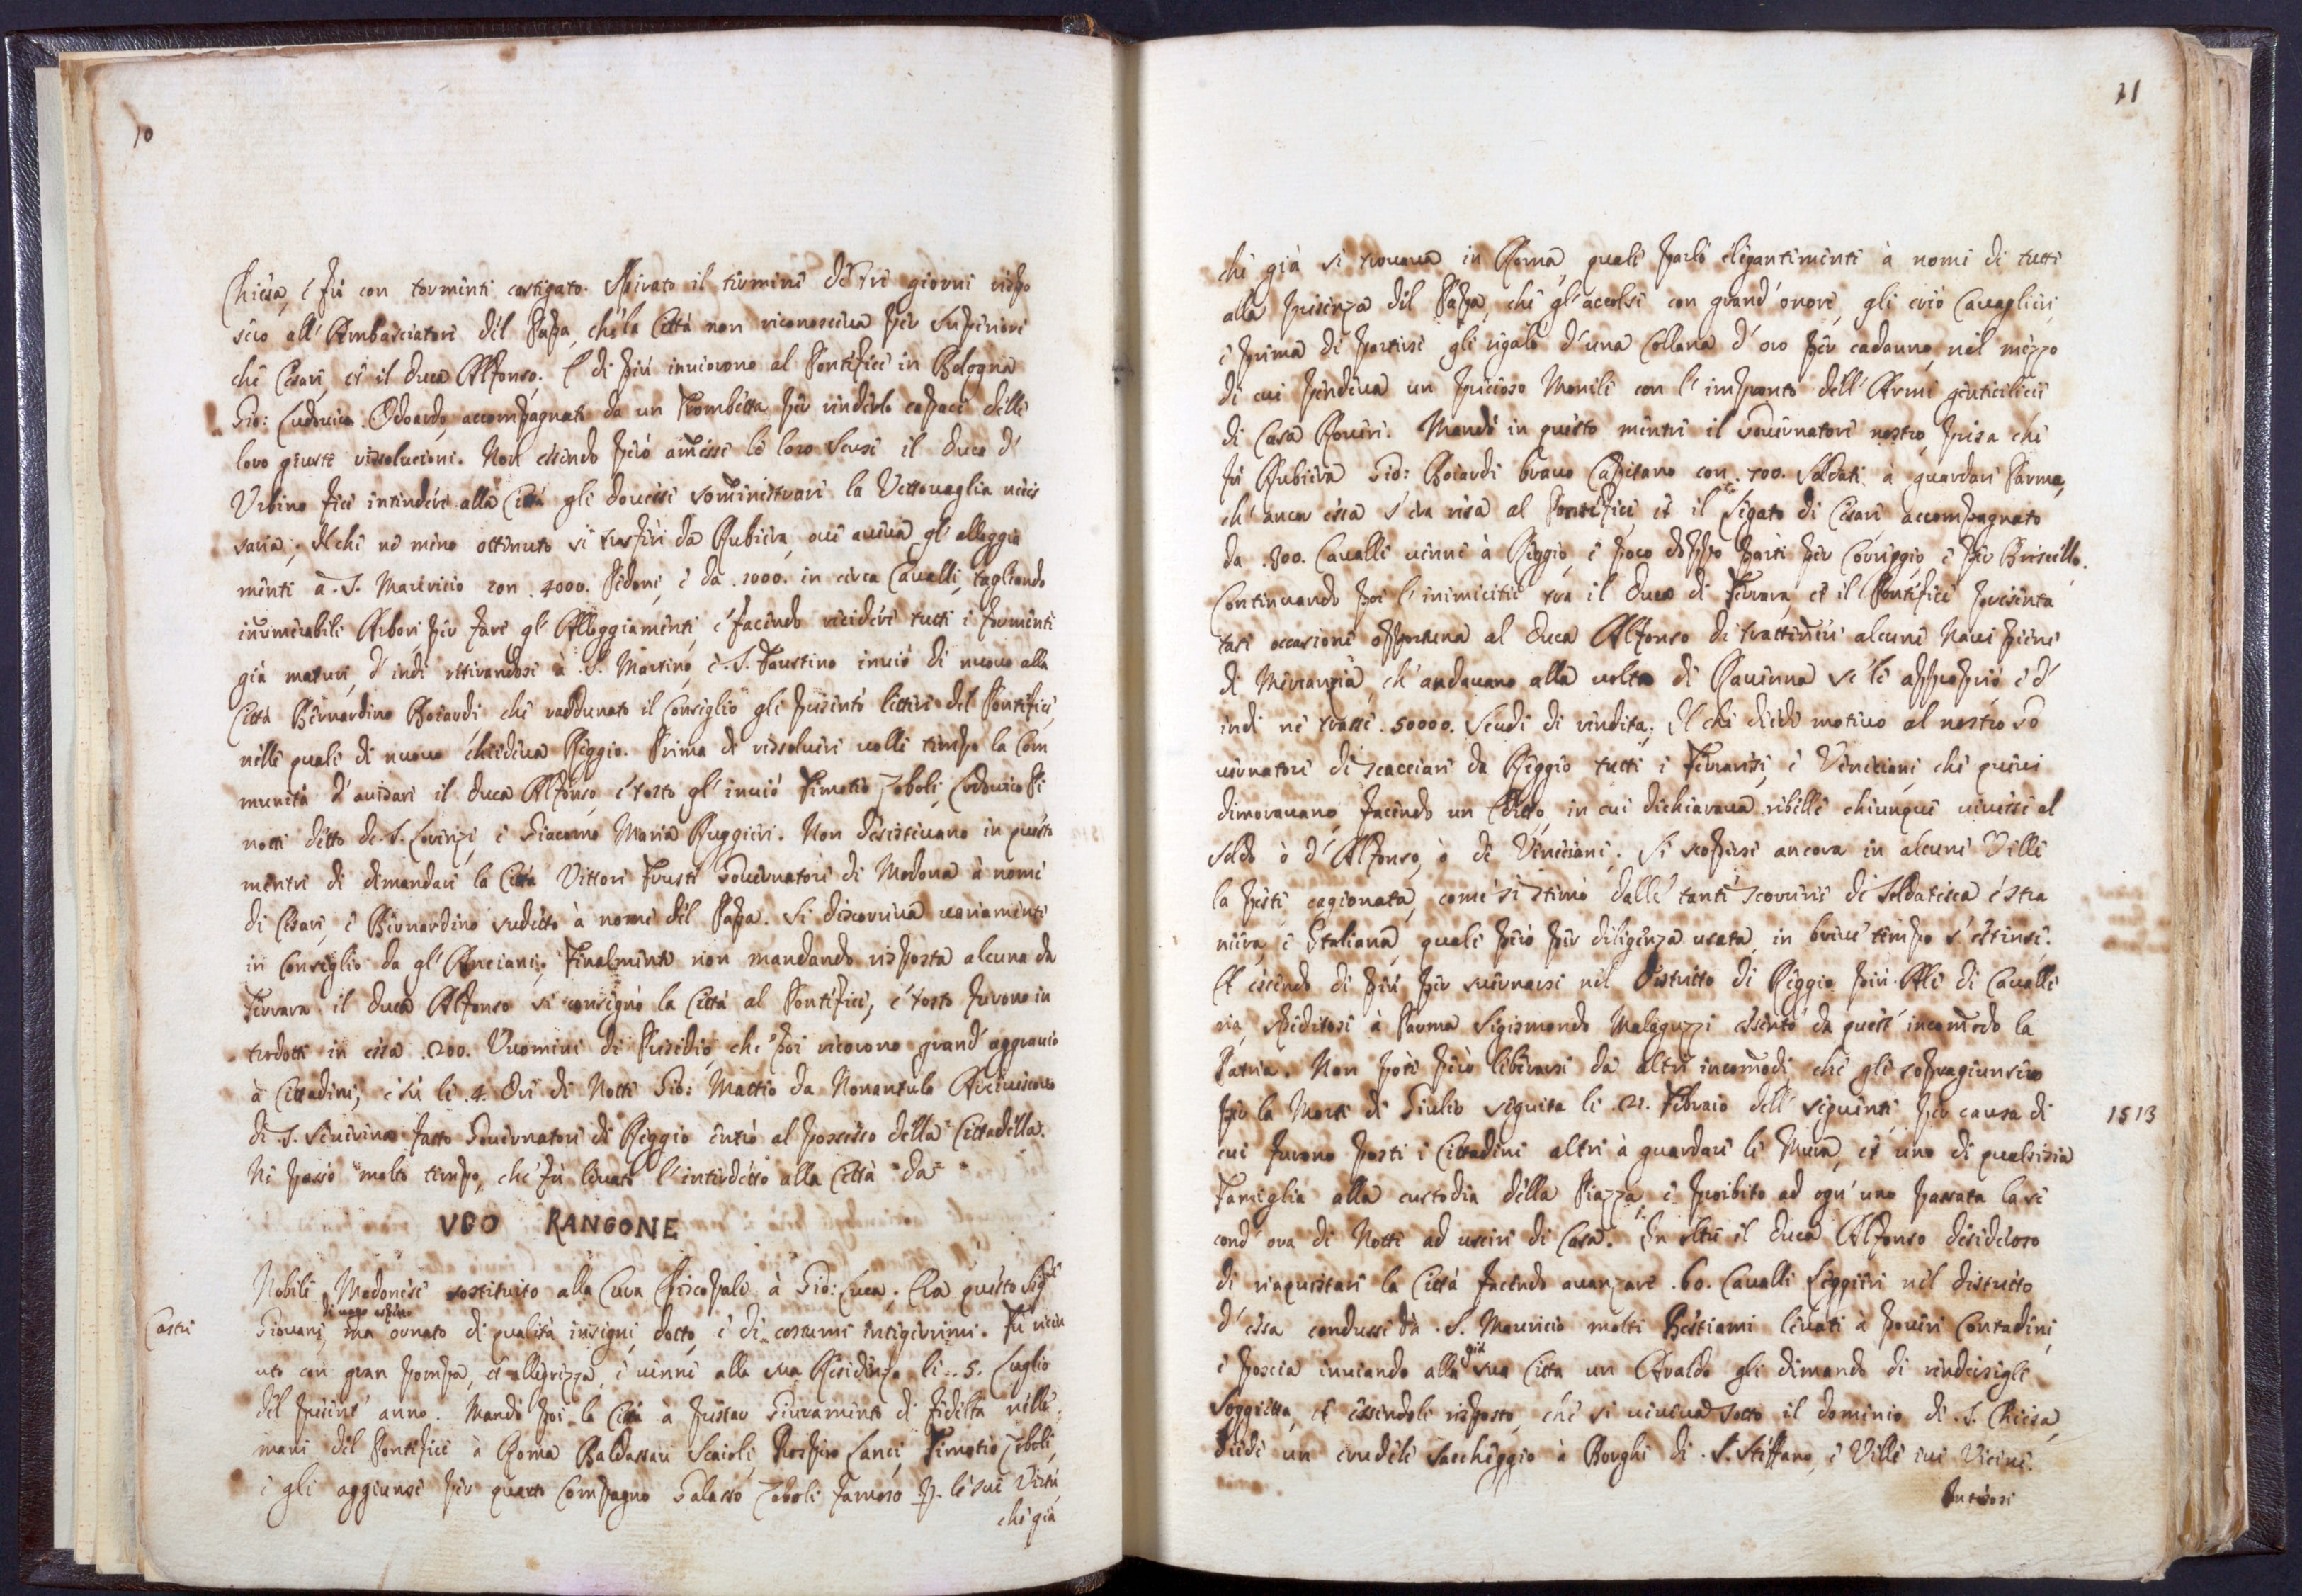 10
Chiesa, e fù con tormenti castigato. Spirato il termine de Tre giorni rispo
sero all' Ambasciatore del Papa, che la Città non riconosceva per Superiore
che Cesare, et il Duca Alfonso. E di più inviorono al Pontifice in Bologna
Gio: Ludovico Odoardo accompagnati da un Trombetta per renderlo capace delle
loro giuste rissolucioni. Non essendo però amesse le loro Scuse il Duca d'
Urbino fece intendere alla Città gli dovesse sominestrare la Vettovaglia neces
saria, Il che nè meno ottenuto si trasferì da Rubiera, ove aveva gl' alloggia
menti a S. Mauricio con .4000. Pedoni, e da .1000. in circa Cavalli, tagliando
inumerabili Arbori per fare gl' Alloggiamenti, e facendo recidere tutti i formenti
già maturi, d' indi ritirandosi à S. Martino, e S. Faustino inviò di nuovo alla
Città Bernardino Boiardi che raddunato il Consiglio gli presentò lettere del Pontifice,
nelle quali di nuovo chiedeva Reggio. Prima di rissolvere volle tempo la Com
munità d' avisare il Duca Alfonso, e tosto gl' inviò Timoteo Zoboli, Lodovico Pi
notti detto de S. Lorenzi e Giacomo Maria Ruggieri. Non desistevano in questo
mentre di dimandare la Città Vittore Frusti Governatore di Modona à nome
di Cesare, e Bernardino sudetto à nome del Papa. Si discorreva variamente
in Consiglio da gl' Anciani; Finalmente non mandando risposta alcuna da
Ferrara il Duca Alfonso si consignò la Città al Pontifice, e tosto furono in
trodotti in essa .200. Uuomini di Presidio, che poi recorono grand' aggravio
à Cittadini, e sù le .4. Ore di Notte Gio: Mattio da Nonantula Arcivescovo
di S. Severina fatto Governatore di Reggio entrò al possesso della Cittadella.
Nè passò molto tempo, che fù levato l' interdetto alla Città da
VGO RANGONE
Nobile Modonese sostituito alla Cura Episcopale à Gio: Luca. Era questo Sig.re
Castri
di vago aspetto
Giovane, ma ornato di qualità insigni, dotto, e di costumi integerrimi. Fù ricev
uto con gran pompa, et allegrezza, e venne alla sua Residenza li .5. Luglio
del presente anno. Mandò poi la Città à prestar Giuramento di fedeltà nelle
mani del Pontifice à Roma Baldassare Scaioli, Prospero Lanci, Timoteo Zoboli,
e gli aggiunse per quarto Compagno Galasso Zoboli famoso p. le sue Virtù,
che già
11
che già si trovava in Roma, quale parlò elegantemente à nome di tutti
alla presenza del Papa, che gl' accolse con grand' onore, gli creò Cavaglieri,
e prima di partirsi gli regalò d' una Collana d' oro per cadauno, nel mezzo
di cui pendeva un precioso Monile con l' impronto dell' Arme gentilicie
di Casa Rovere. Mandò in questo mentre il Governatore nostro, presa che
fù Rubiera Gio: Boiardi bravo Capitano con .700. Soldati à guardare Parma,
ch' ancor essa s' era resa al Pontifice et il Legato di Cesare accompagnato
da .800. Cavalli venne à Reggio, e poco doppo partì per Correggio, e per Brescello.
Continuando poi l' inimicitie tra il Duca di Ferrara, et il Pontifice presenta
tasi occasione opportuna al Duca Alfonso di trattenere alcune Navi piene
di Mercanzia, ch' andavano alla volta di Ravenna se le appropriò e d'
indi ne trasse .50000. Scudi di rendita; Il che diede motivo al nostro Go
vernatore di scacciare da Reggio tutti i Ferraresi, e Veneciani che quivi
dimoravano, facendo un Editto, in cui dichiarava ribelle chiunque vivesse al
Soldo ò d' Alfonso, ò de Veneciani. Si scoperse ancora in alcune Ville
la peste cagionata, come si stimò dalle tante scorrerie di Soldatesca estra
niera, e Italiana, quale però per diligenza usata, in breve tempo s' estinse.
Et essendo di più per svernarsi nel Distretto di Reggio più Ale di Cavalle
ria, speditosi à Parma Sigismondo Malaguzzi essentò da quest' incomodo la
Patria. Non potè però liberarsi da altri incomodi, che gli sopragiunsero
per la Morte di Giulio seguita li .21. Febraio dell' seguente, per causa di
1513
cui furono posti i Cittadini altri à guardare le Mura, et uno di qualsisia
Famiglia alla custodia della Piazza, e proibito ad ogn' uno passata la se
cond' ora di Notte ad uscire di Casa. In oltre il Duca Alfonso desideroso
di riaquistare la Città facendo avanzare .60. Cavalli Leggieri nel distretto
d' essa condusse da S. Mauricio molti Bestiami levati à poveri Contadini,
già
e poscia inviando alla sua Città un Araldo gli dimandò di rendersegli
Soggietta, et essendole risposto, che si viveva sotto il dominio di S. Chiesa,
diede un crudele saccheggio à Borghi di S. Steffano, e Ville ivi Vicine.
Intesosi